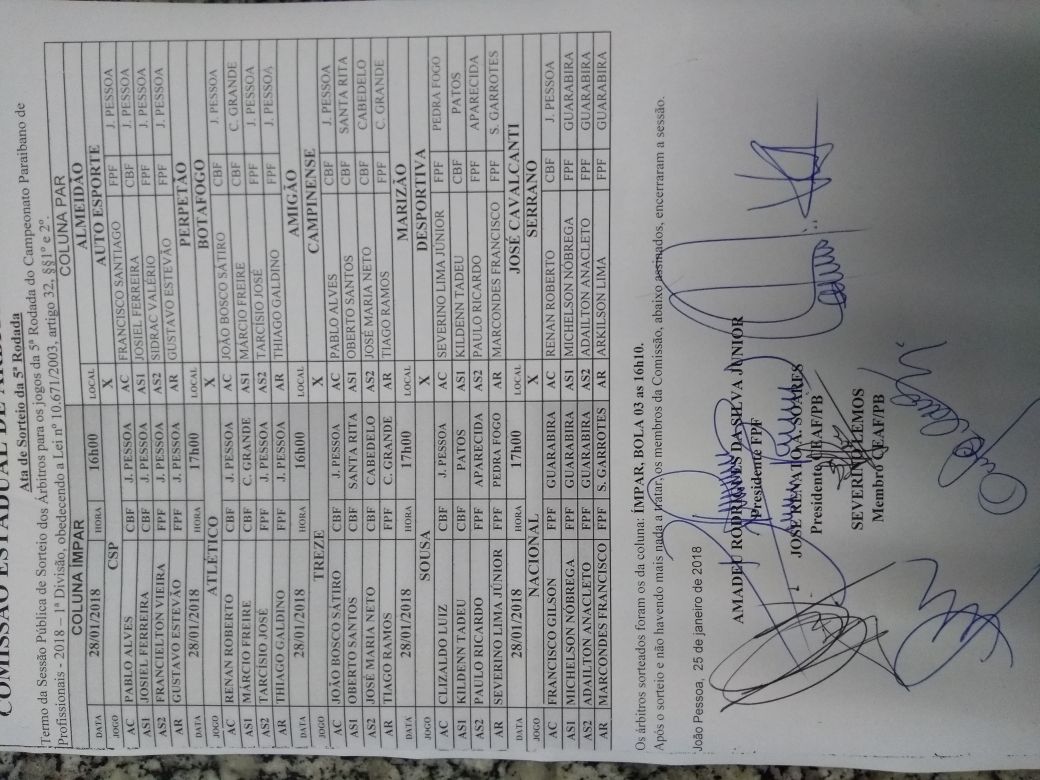 COMISSÃO ESTADUAL DE
Ata de Sorteio da 5ª Rodada
Termo da Sessão Pública de Sorteio dos Árbitros para os jogos da 5ª Rodada do Campeonato Paraibano de
Profissionais - 2018 – 1ª Divisão, obedecendo a Lei nº 10.671/2003, artigo 32, §§1º e 2º.
COLUNA ÍMPAR COLUNA PAR
DATA 28/01/2018 HORA 16h00 LOCAL ALMEIDÃO
JOGO CSP X AUTO ESPORTE
AC PABLO ALVES CBF J. PESSOA AC FRANCISCO SANTIAGO FPF J. PESSOA
AS1 JOSIEL FERREIRA CBF J. PESSOA AS1 JOSIEL FERREIRA CBF J. PESSOA
AS2 FRANCIELTON VIEIRA FPF J. PESSOA AS2 SIDRAC VALÉRIO FPF J. PESSOA
AR GUSTAVO ESTEVÃO FPF J. PESSOA AR GUSTAVO ESTEVÃO FPF J. PESSOA
DATA 28/01/2018 HORA 17h00 LOCAL PERPETÃO
JOGO ATLÉTICO X BOTAFOGO
AC RENAN ROBERTO CBF J. PESSOA AC JOÃO BOSCO SÁTIRO CBF J. PESSOA
AS1 MÁRCIO FREIRE CBF C. GRANDE AS1 MÁRCIO FREIRE CBF C. GRANDE
AS2 TARCÍSIO JOSÉ FPF J. PESSOA AS2 TARCÍSIO JOSÉ FPF J. PESSOA
AR THIAGO GALDINO FPF J. PESSOA AR THIAGO GALDINO FPF J. PESSOA
DATA 28/01/2018 HORA 16h00 LOCAL AMIGÃO
JOGO TREZE X CAMPINENSE
AC JOÃO BOSCO SÁTIRO CBF J. PESSOA AC PABLO ALVES CBF J. PESSOA
AS1 OBERTO SANTOS CBF SANTA RITA AS1 OBERTO SANTOS CBF SANTA RITA
AS2 JOSÉ MARIA NETO CBF CABEDELO AS2 JOSÉ MARIA NETO CBF CABEDELO
AR TIAGO RAMOS FPF C. GRANDE AR TIAGO RAMOS FPF C. GRANDE
DATA 28/01/2018 HORA 17h00 LOCAL MARIZÃO
JOGO SOUSA X DESPORTIVA
AC CLIZALDO LUIZ CBF J. PESSOA AC SEVERINO LIMA JÚNIOR FPF PEDRA FOGO
AS1 KILDENN TADEU CBF PATOS AS1 KILDENN TADEU CBF PATOS
AS2 PAULO RICARDO FPF APARECIDA AS2 PAULO RICARDO FPF APARECIDA
AR SEVERINO LIMA JÚNIOR FPF PEDRA FOGO AR MARCONDES FRANCISCO FPF S. GARROTES
DATA 28/01/2018 HORA 17h00 LOCAL JOSÉ CAVALCANTI
JOGO NACIONAL X SERRANO
AC FRANCISCO GILSON FPF GUARABIRA AC RENAN ROBERTO CBF J. PESSOA
AS1 MICHELSON NÓBREGA FPF GUARABIRA AS1 MICHELSON NÓBREGA FPF GUARABIRA
AS2 ADAILTON ANACLETO FPF GUARABIRA AS2 ADAILTON ANACLETO FPF GUARABIRA
AR MARCONDES FRANCISCO FPF S. GARROTES AR ARKILSON LIMA FPF GUARABIRA
Os árbitros sorteados foram os da coluna: ÍMPAR, BOLA 03 as 16h10.
Após o sorteio e não havendo mais nada a tratar, os membros da Comissão, abaixo assinados, encerraram a sessão.
João Pessoa, 25 de janeiro de 2018
AMADEU RODRIGUES DA SILVA JÚNIOR
Presidente FPF
JOSÉ RENATO A. SOARES
Presidente CEAF/PB
SEVERINO LEMOS
Membro CEAF/PB